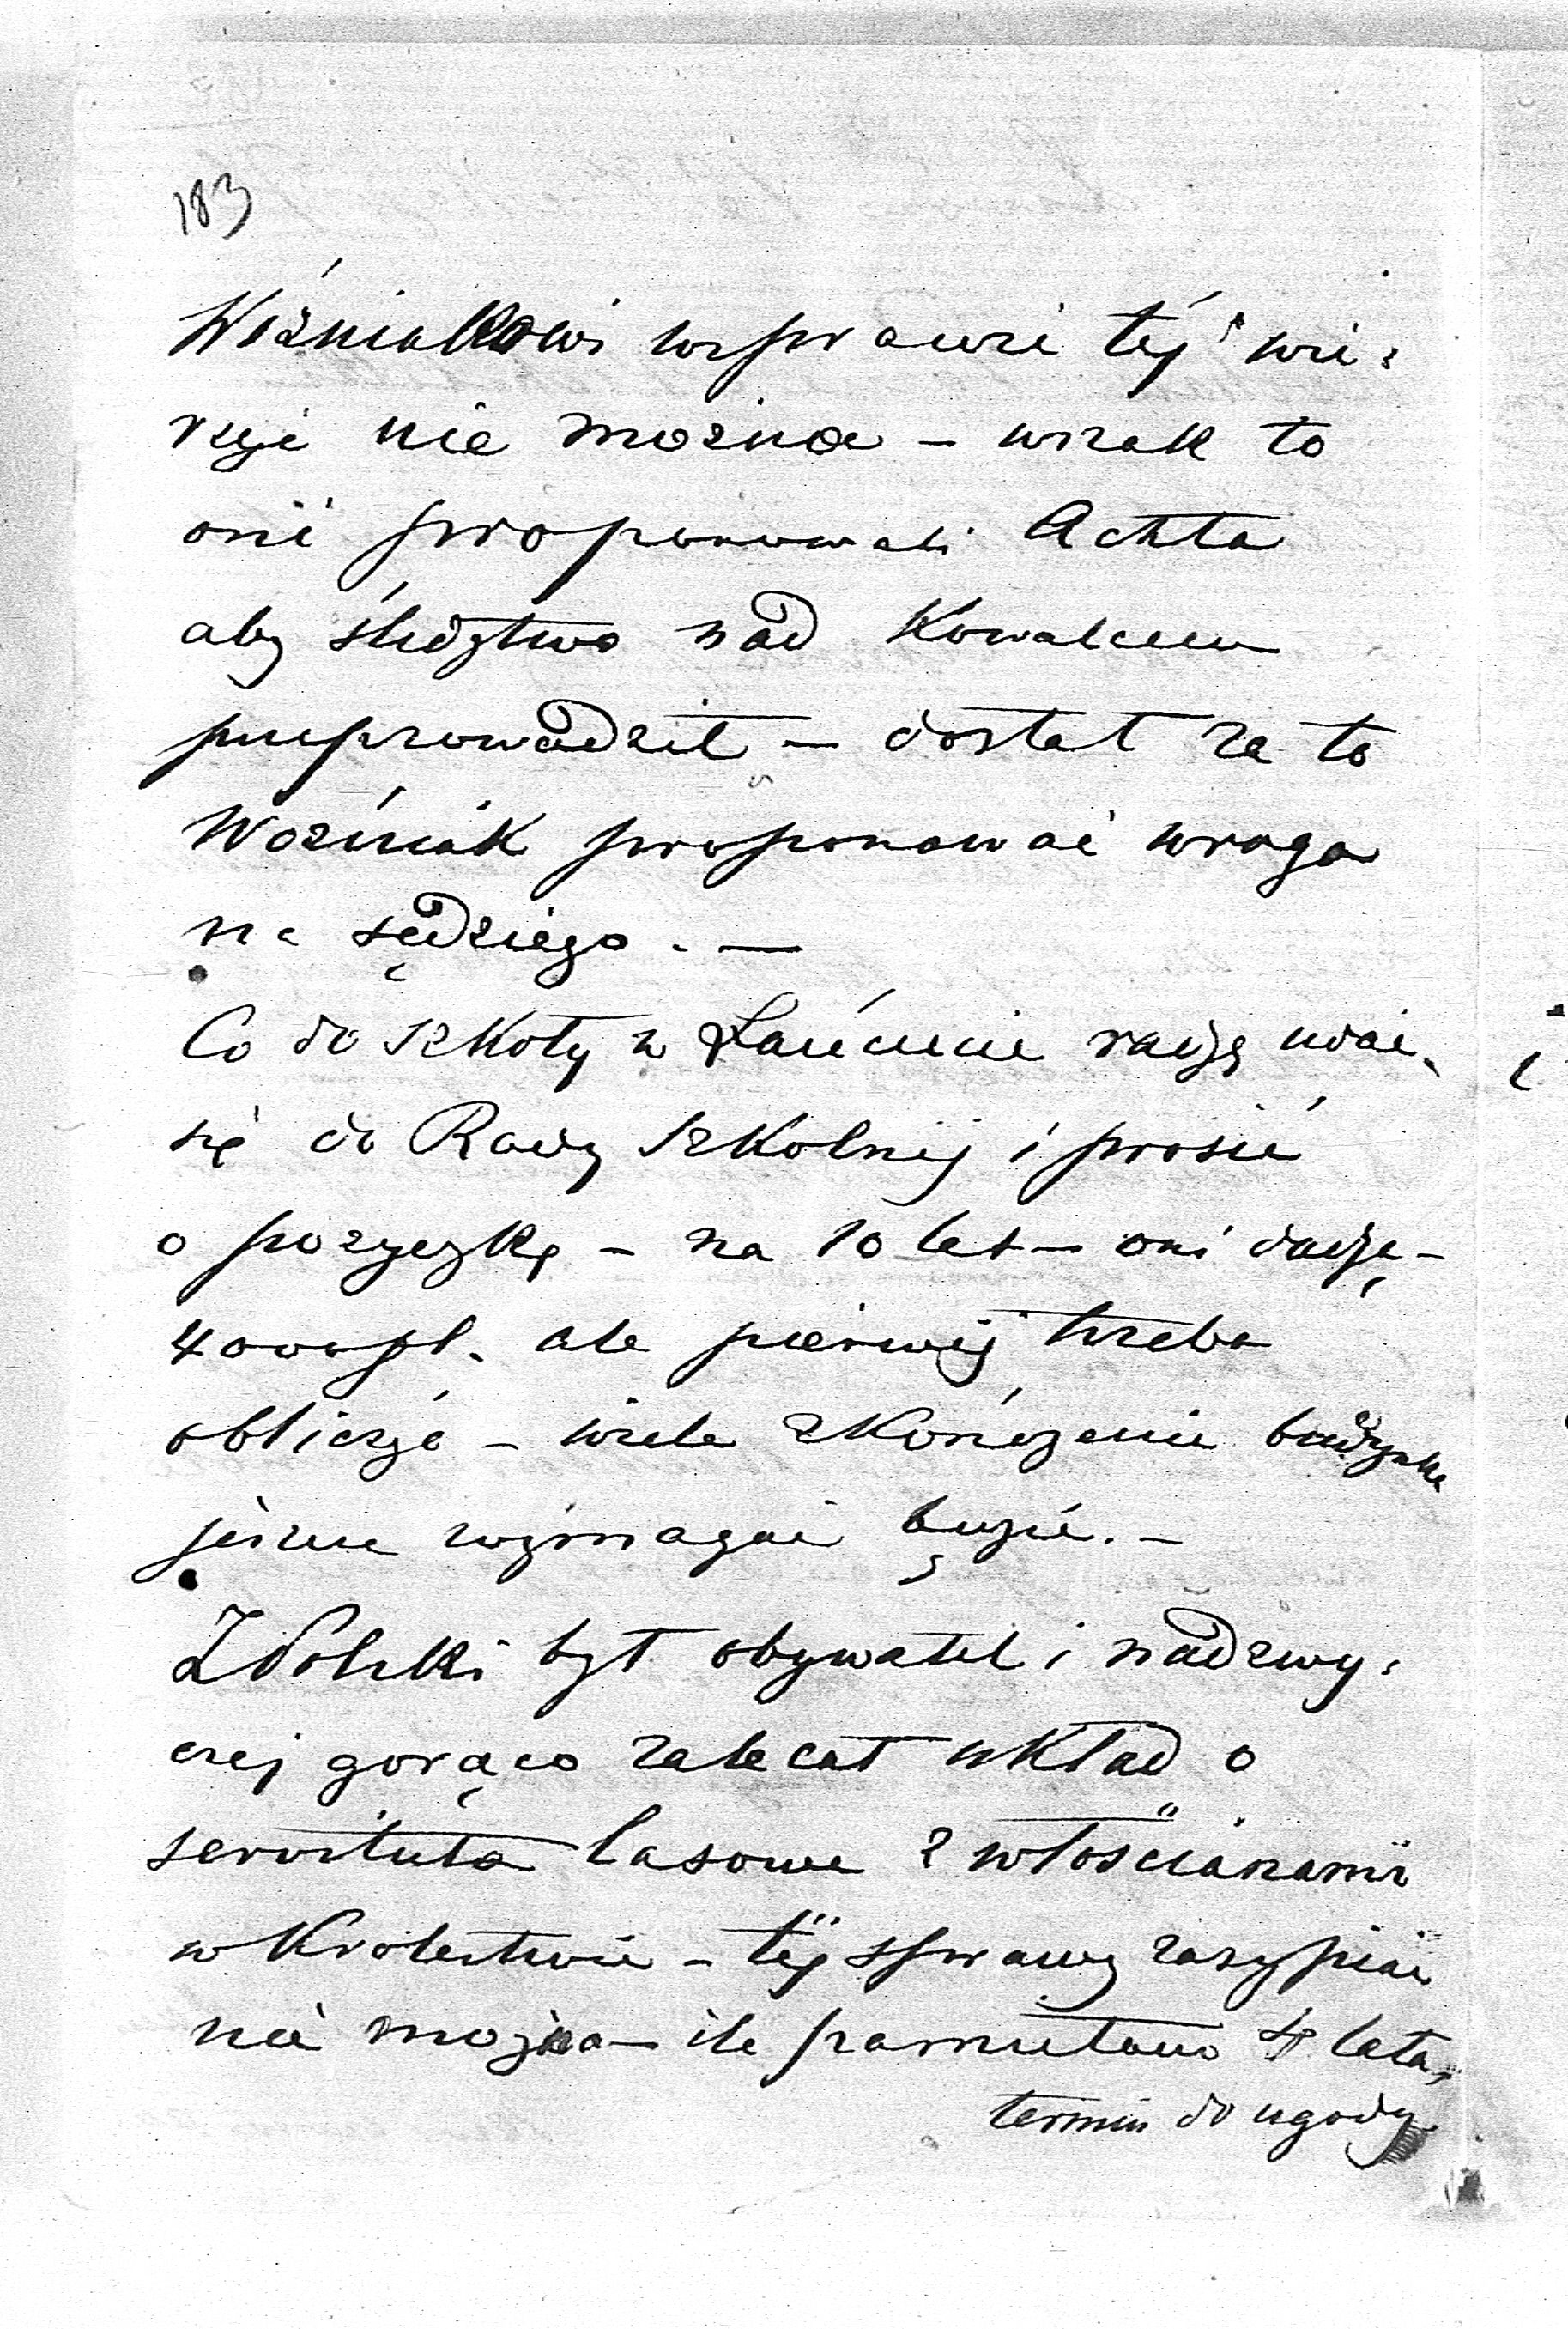 183
Woźniakowi w sprawie téj wie-
rzyć nie można – wszak to
oni proponowali Achta
aby śledztwo nad Kowalem
przeprowadził – dostał za to
Woźniak proponować wroga
na sędziego. –
Co do szkoły w Łańcucie radzę udać
się do Rady Szkolnéj i prosić
o pożyczkę – na 10 lat – oni dadzą –
4000 zł. ale pierwéj trzeba
obliczyć – wiele skończenie budynku
jeszcze wymagać będzie. –
Z Polski był obywatel i nadzwy-
czaj gorąco zalecał układ o
servituta lasowe z włościanami
w Królestwie – téj sprawy zasypiać
nie można – ile pamiętam lata,
termin do ugody